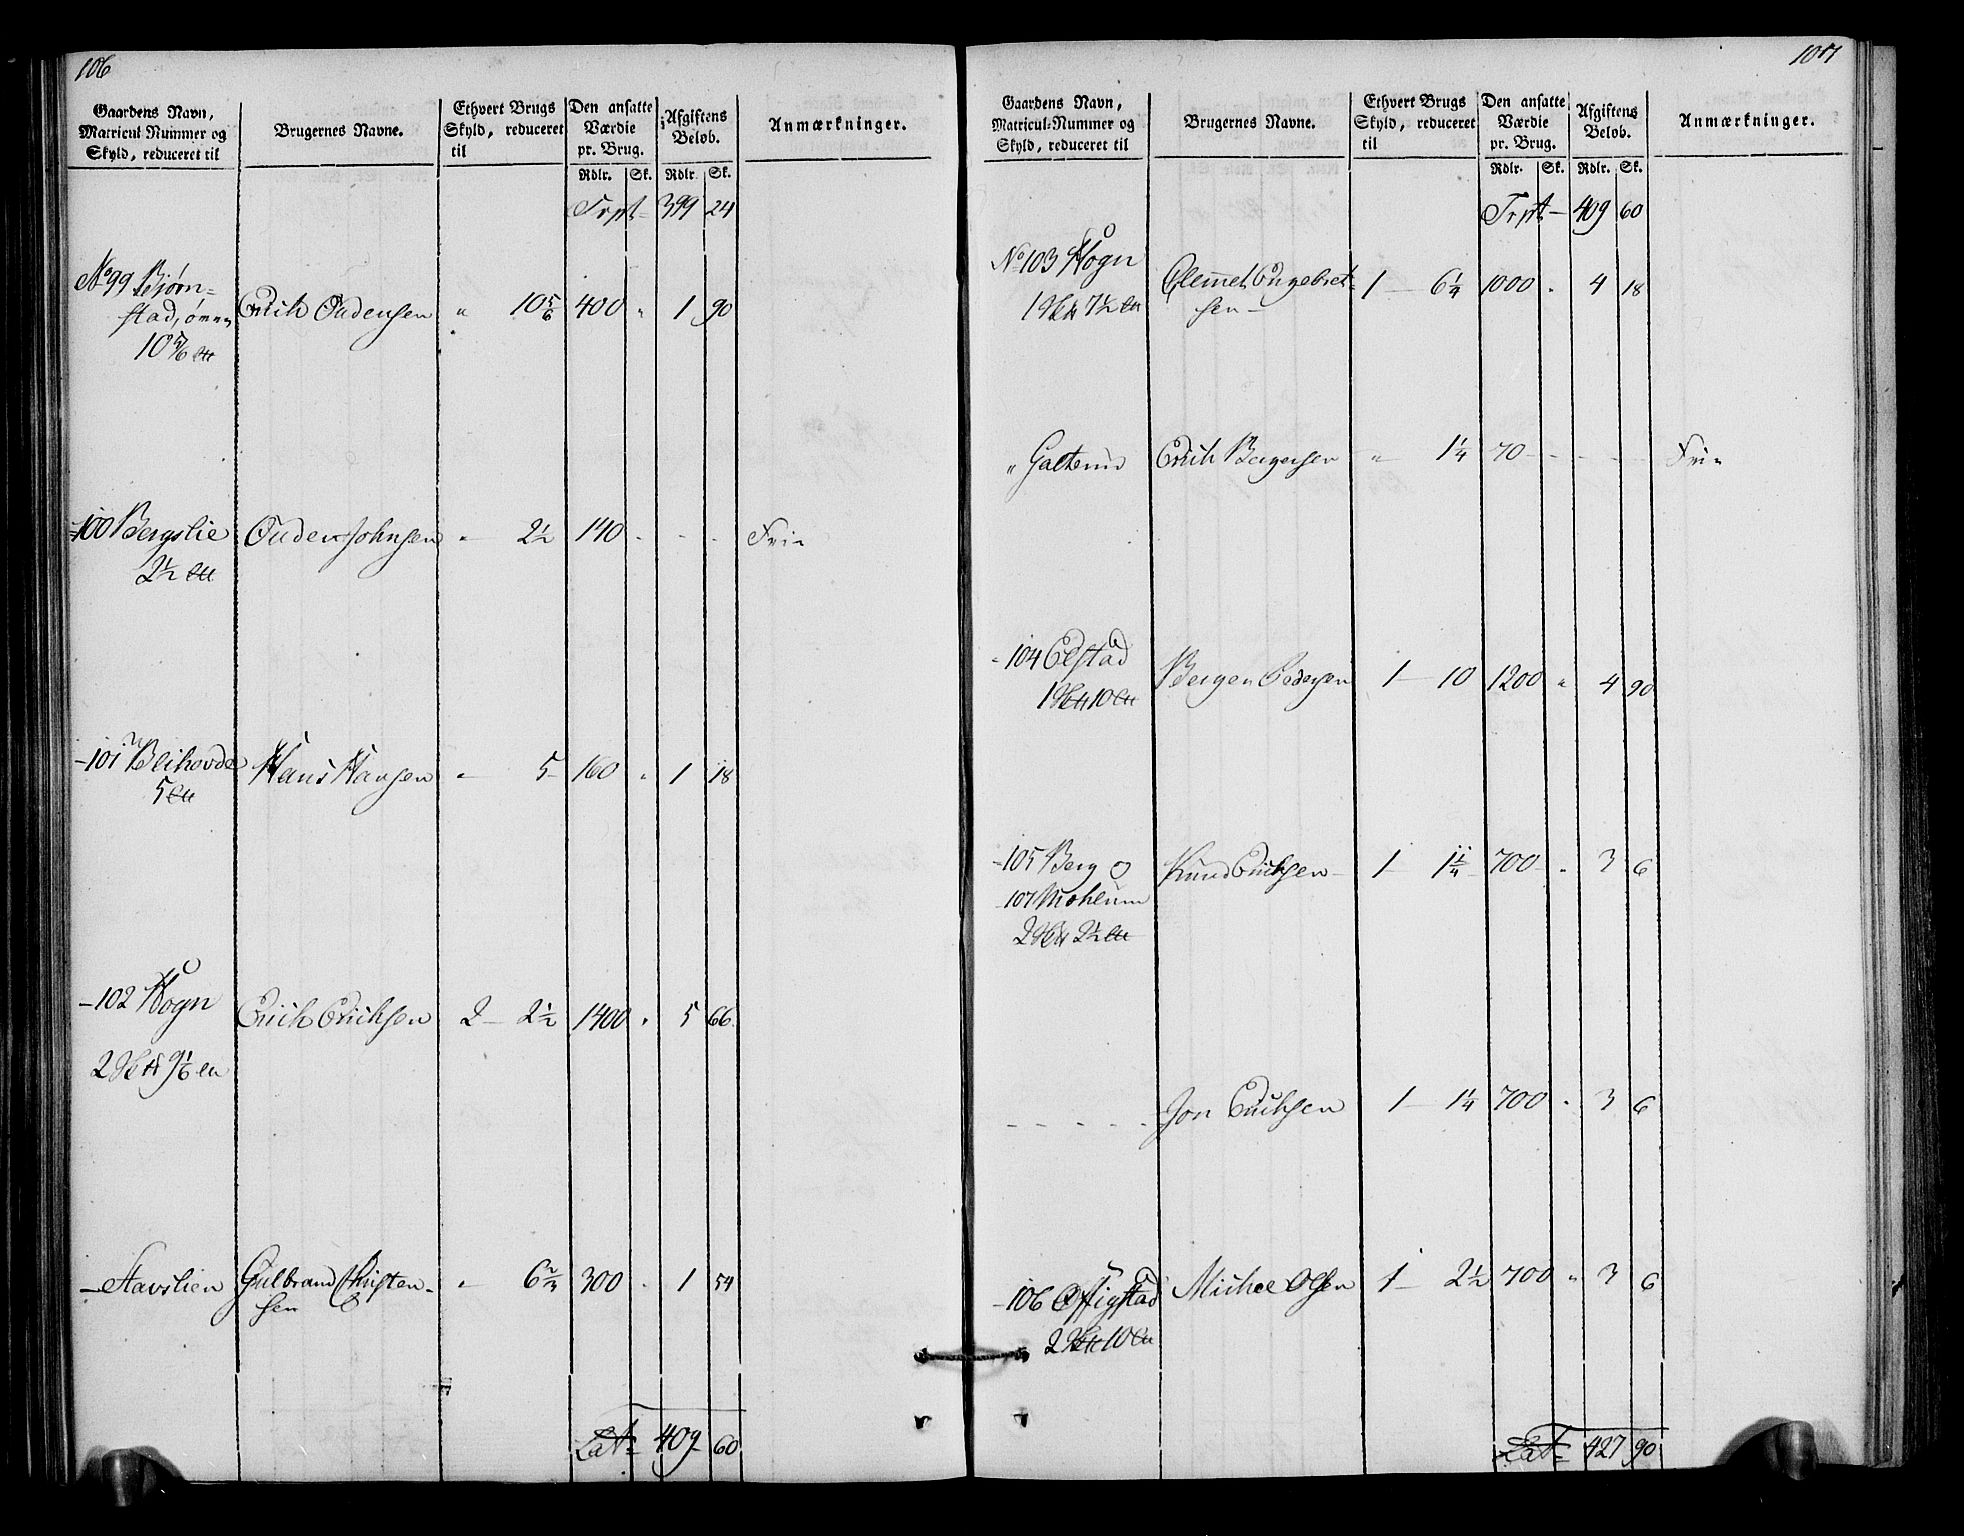 106
Gaardens Navn, Matricul-Nummer og Skyld, reduceret til | Brugernes Navne. | Ethvert Brugs Skyld, reduceret til | Den ansatte Værdie pr. Brug. | Afgiftens Beløb. | Anmærkninger.
Rdlr. Sk. Rdlr. Sk.
Trpt 399 24
No 99 Bjørn-
stad, Erich Oudensen " 10 5/6 400 " 1 90
10 5/6
-100 Bergslie Ouden Johnsen " 2 1/2 140 - - - Frie
2 1/2
-101 Blihovde Hans Hansen " 5 160 " 1 18
5
-102 Hogn Erich Erichsen 2 - 2 1/2 1400 " 5 66
2 9 1/6
- Stavslien Gulbrand Christen- " 6 2/3 300 " 1 54
sen
Lat 409 60
107
Gaardens Navn, Matricul-Nummer og Skyld, reduceret til | Brugernes Navne. | Ethvert Brugs Skyld, reduceret til | Den ansatte Værdie pr. Brug. | Afgiftens Beløb. | Anmærkninger.
Rdlr. Sk. Rdlr. Sk.
Trpt 409 60
No 103 Hogn Clemet Engebret- 1 - 6 1/4 1000 " 4 18
1 7 1/2 sen
" Erich Bergersen " 1 1/4 70 - - - - Frie
-104 Elstad Bergen Pedersen 1 - 10 1200 " 4 90
1 10
-105 Berg og Knud Erichsen 1 - 1 1/4 700 " 3 6
107 Moheum
2 2 1/2
- - - - - Jon Erichsen 1 - 1 1/4 700 " 3 6
-106 Offigstad Michel Olsen 1 - 2 1/2 700 " 3 6
2 10
Lat 427 90